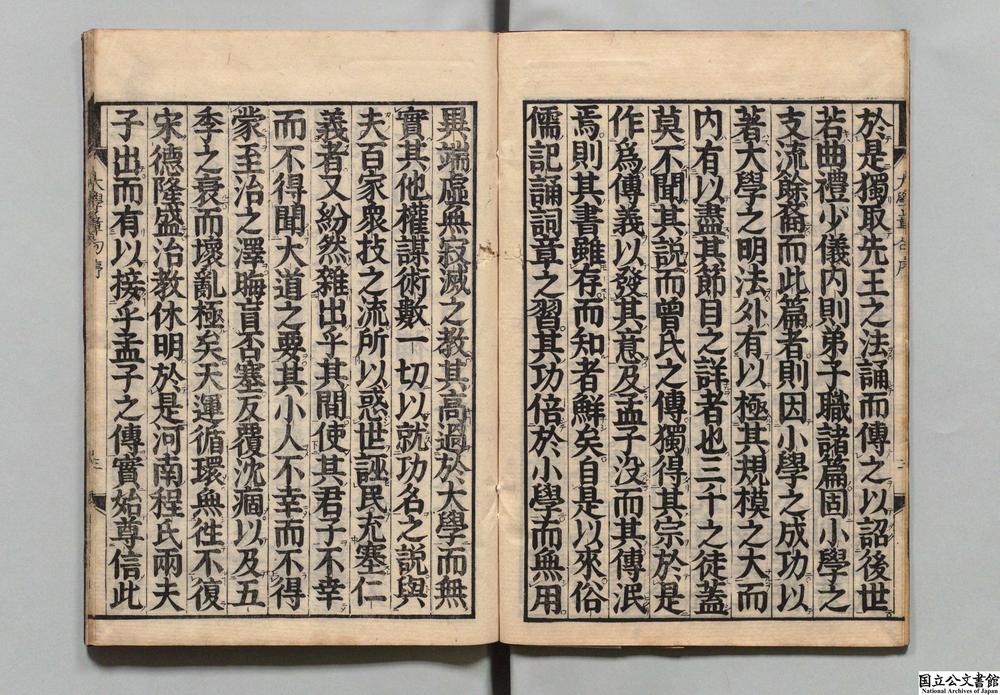 於是獨取先王之法誦而傳之以詔後世
若曲禮少儀內則弟子職諸篇固小學之
支流餘裔而此篇者則因小學之成功以
著大學之明法外有以極其規模之大而
內有以盡其節目之詳者也三千之徒蓋
莫不聞其說而曾氏之傳獨得其宗於是
作爲傳義以發其意及孟子没而其傳泯
焉則其書雖存而知者鮮矣自是以來俗
儒記誦詞章之習其功倍於小學而無用
異端虛無寂滅之教其高過於大學而無
實其他權謀術數一切以就功名之說與
夫百家衆技之流所以惑世誣民充塞仁
義者又紛然雜出乎其間使其君子不幸
而不得聞大道之要其小人不幸而不得
蒙至治之澤晦盲否塞反覆沈痼以及五
季之衰而壞亂極矣天運循環無徃不復
宋德隆盛治教休明於是河南程氏兩夫
子出而有以接乎孟子之傳實始尊信此
大學章句序
三
国立公文書館
National Archives of Japan